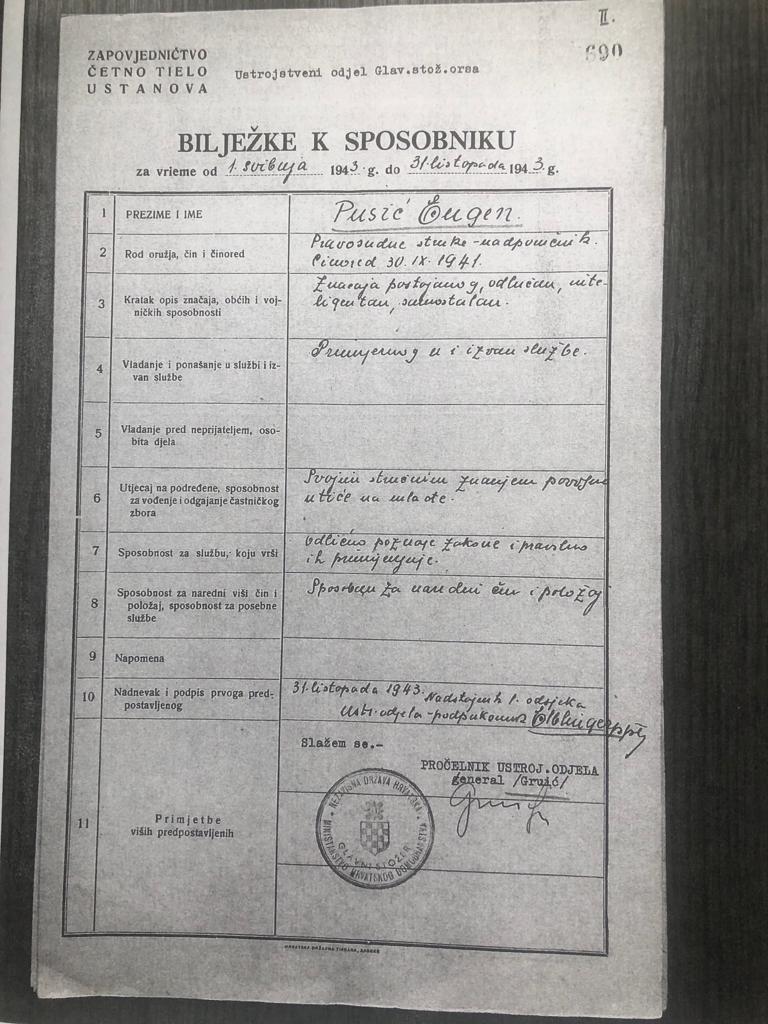 II.
690
ZAPOVJEDNIČTVO
ČETNO TIELO
USTANOVA
Ustrojstveni odjel Glav.stož.orsa
BILJEŽKE K SPOSOBNIKU
za vrieme od 1. svibnja 1943. g. do 31.listopada 1943. g.
1 PREZIME I IME Pusić Eugen.
2 Rod oružja, čin i činored
Pravosudne struke - nadporučnik.
Činored 30.IX.1941.
3 Kratak opis značaja, obćih i voj-
ničkih sposobnosti
Značaja postojanog, odlučan, inte-
ligentan, samostalan.
4 Vladanje i ponašanje u službi i iz-
van službe
Primjernog u i izvan službe.
5 Vladanje pred neprijateljem, oso-
bita djela
6 Utjecaj na podređene, sposobnost
za vođenje i odgajanje častničkog
zbora
Svojim stručnim znanjem povoljno
utiče na mlađe.
7 Sposobnost za službu, koju vrši
Odlično poznaje zakone i pravilno
ih primjenjuje.
8 Sposobnost za naredni viši čin i
položaj, sposobnost za posebne
službe
Sposoban za naredni čin i položaj
9 Napomena
10 Nadnevak i podpis prvoga pred-
postavljenog
31.listopada 1943. Nadstojnik 1. odsjeka
Ustr. odjela - podpukovnik
11 Primjetbe
viših predpostavljenih
Slažem se.-
PROČELNIK USTROJ.ODJELA
general /Gruić/
NEZAVISNA DRŽAVA HRVATSKA
MINISTARSTVO HRVATSKOG DOMOBRANSTVA
GLAVNI STOŽER
HRVATSKA DRŽAVNA TISKARA, ZAGREB